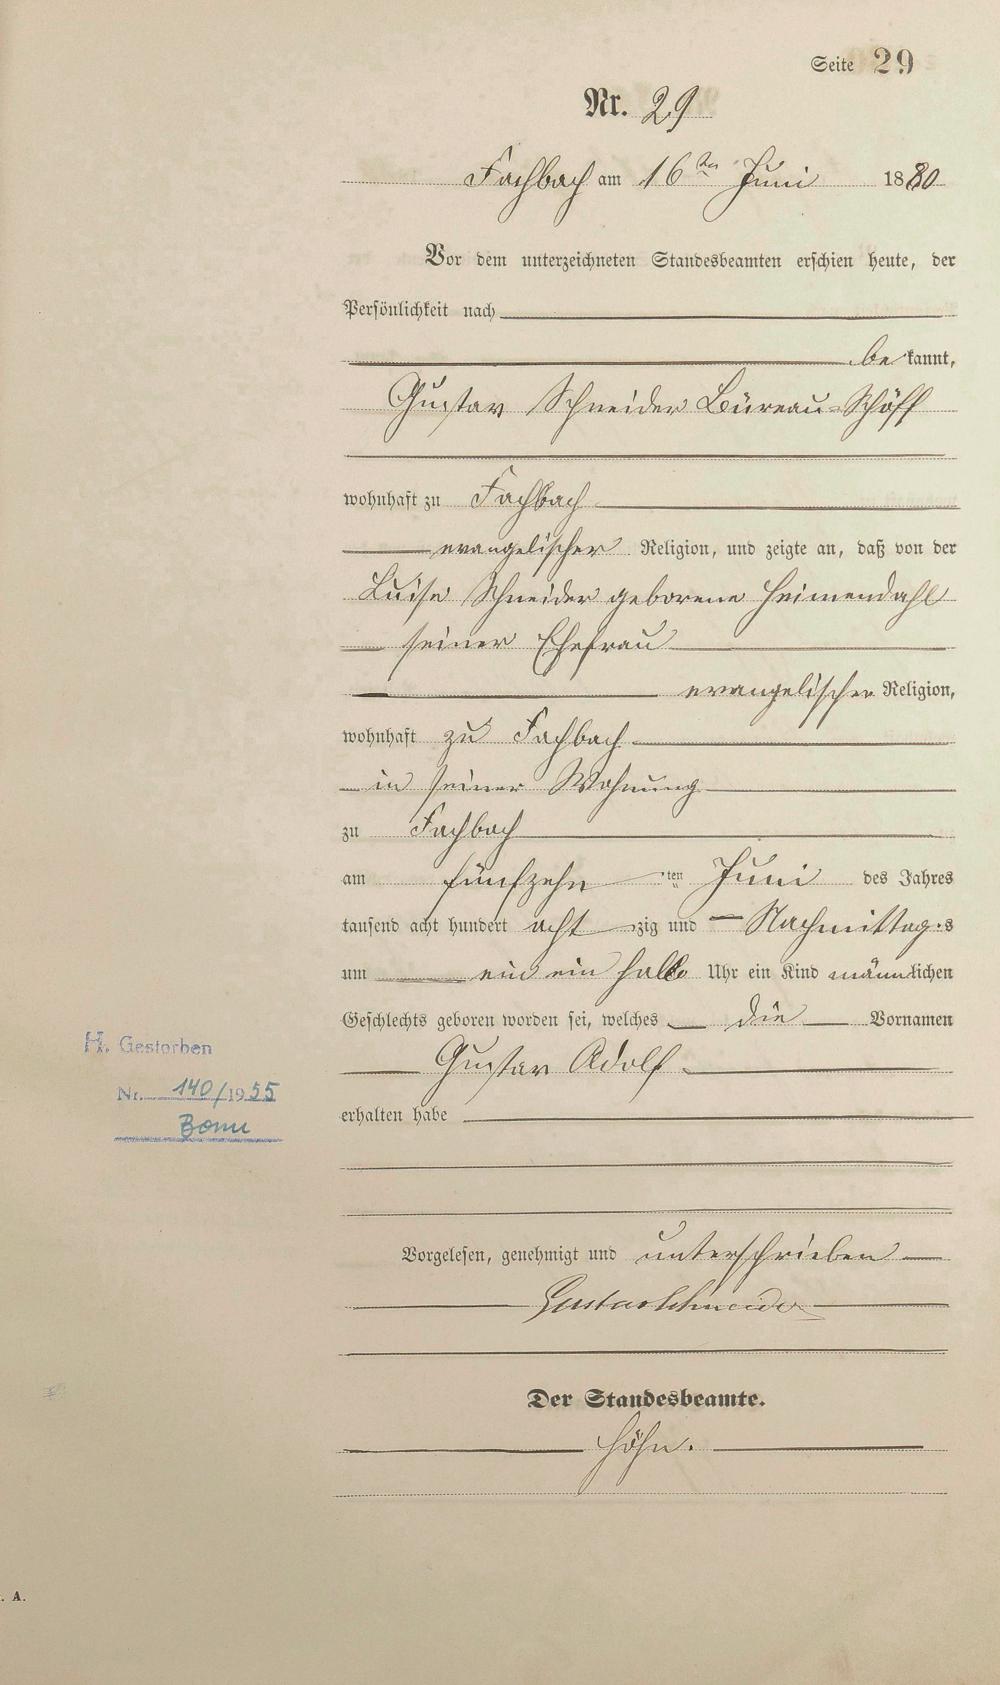 Seite 29
Nr. 29
Fachbach am 16ten Juni 1880
Vor dem unterzeichneten Standesbeamten erschien heute, der
Persönlichkeit nach
be kannt,
Gustav Schneider Büreau-Schöff
wohnhaft zu Fachbach
evangelischer Religion, und zeigte an, daß von der
Luise Schneider geborene Heimendahl
seiner Ehefrau
evangelischer Religion,
wohnhaft zu Fachbach
in seiner Wohnung
zu Fachbach
am fünfzehn ten Juni des Jahres
tausend acht hundert acht zig und Nachmittag s
um ein ein halb Uhr ein Kind männlichen
Geschlechts geboren worden sei, welches die Vornamen
Gustav Adolf
erhalten habe
H. Gestorben
Nr. 140/1955
Bonn
Vorgelesen, genehmigt und unterschrieben
Gustav Schneider
Der Standesbeamte.
Höhn.
. A.